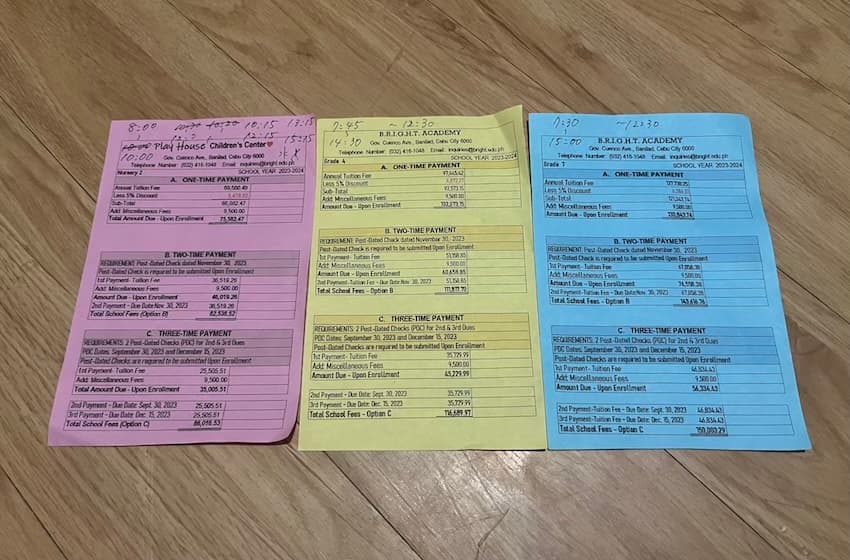 8:00 10:30 10:30 10:15 13:15
12:15 15:15
Play House Children's Center
10:00 Gov. Cuenco Ave., Banilad, Cebu City 6000
Telephone Number: (032) 416-1048 Email: inquiries@bright.edu.ph
Nursery 2 SCHOOL YEAR 2023-2024
A. ONE-TIME PAYMENT
Annual Tuition Fee
Less 5% Discount
Sub-Total
Add Miscellaneous Fees 9,500.00
Total Amount Due - Upon Enrollment 75,582.47
B. TWO-TIME PAYMENT
REQUIREMENT: Post-Dated Check dated November 30, 2023
Post-Dated Check is required to be submitted Upon Enrollment
1st Payment- Tuition Fee 36,519.26
Add: Miscellaneous Fees 9,500.00
Amount Due - Upon Enrollment 46,019.26
2nd Payment - Due Date: Nov 30, 2023 36,519.26
Total School Fees (Option B) 82,538.52
C. THREE-TIME PAYMENT
REQUIREMENTS: 2 Post-Dated Checks (PDC) for 2nd & 3rd Dues
PDC Dates: September 30, 2023 and December 15, 2023
Post-Dated Checks are required to be submitted Upon Enrollment
1st Payment- Tuition Fee 25,505.51
Add: Miscellaneous Fees 9,500.00
Total Amount Due - Upon Enrollment 35,005.51
2nd Payment - Due Date: Sept 30, 2023 25,505.51
3rd Payment - Due Date: Dec. 15, 2023 25,505.51
Total School Fees (Option C) 86,016.53
7:45 ~12:30
14:30 B.R.I.G.H.T. ACADEMY
Gov. Cuenco Ave., Banilad, Cebu City 6000
Telephone Number: (032) 416-1048 Email: inquiries@bright.edu.ph
Grade 4 SCHOOL YEAR 2023-2024
A. ONE-TIME PAYMENT
Annual Tuition Fee
Less 5% Discount
Sub-Total
Add Miscellaneous Fees 9,500.00
Amount Due - Upon Enrollment
B. TWO-TIME PAYMENT
REQUIREMENT: Post-Dated Check dated November 30, 2023
Post-Dated Check is required to be submitted Upon Enrollment
1st Payment- Tuition Fee 51,158.85
Add: Miscellaneous Fees 9,500.00
Amount Due - Upon Enrollment 60,658.85
2nd Payment-Tuition Fee - Due Date:Nov. 30, 2023 51,158.85
Total School Fees - Option B 111,817.70
C. THREE-TIME PAYMENT
REQUIREMENTS: 2 Post-Dated Checks (PDC) for 2nd & 3rd Dues
PDC Dates: September 30, 2023 and December 15, 2023
Post-Dated Checks are required to be submitted Upon Enrollment
1st Payment- Tuition Fee 35,729.99
Add: Miscellaneous Fees 9,500.00
Amount Due - Upon Enrollment 45,229.99
2nd Payment - Due Date: Sept. 30, 2023 35,729.99
3rd Payment - Due Date: Dec. 15, 2023 35,729.99
Total School Fees - Option C 116,689.97
7:30 ~12:30
15:00 B.R.I.G.H.T. ACADEMY
Gov. Cuenco Ave., Banilad, Cebu City 6000
Telephone Number: (032) 416-1048 Email: inquiries@bright.edu.ph
Grade 7 SCHOOL YEAR 2023-2024
A. ONE-TIME PAYMENT
Annual Tuition Fee
Less 5% Discount
Sub-Total
Add: Miscellaneous Fees 9,500.00
Amount Due - Upon Enrollment
B. TWO-TIME PAYMENT
REQUIREMENT: Post-Dated Check dated November 30, 2023
Post-Dated Check is required to be submitted Upon Enrollment
1st Payment- Tuition Fee 67,058.38
Add: Miscellaneous Fees 9,500.00
Amount Due - Upon Enrollment 76,558.38
2nd Payment-Tuition Fee - Due Date:Nov. 30, 2023 67,058.38
Total School Fees - Option B 143,616.76
C. THREE-TIME PAYMENT
REQUIREMENTS: 2 Post-Dated Checks (PDC) for 2nd & 3rd Dues
PDC Dates: September 30, 2023 and December 15, 2023
Post-Dated Checks are required to be submitted Upon Enrollment
1st Payment-Tuition Fee 46,834.43
Add: Miscellaneous Fees 9,500.00
Amount Due - Upon Enrollment 56,334.43
2nd Payment-Tuition Fee - Due Date: Sept. 30, 2023 46,834.43
3rd Payment-Tuition Fee - Due Date: Dec. 15, 2023 46,834.43
Total School Fees - Option C 150,003.29